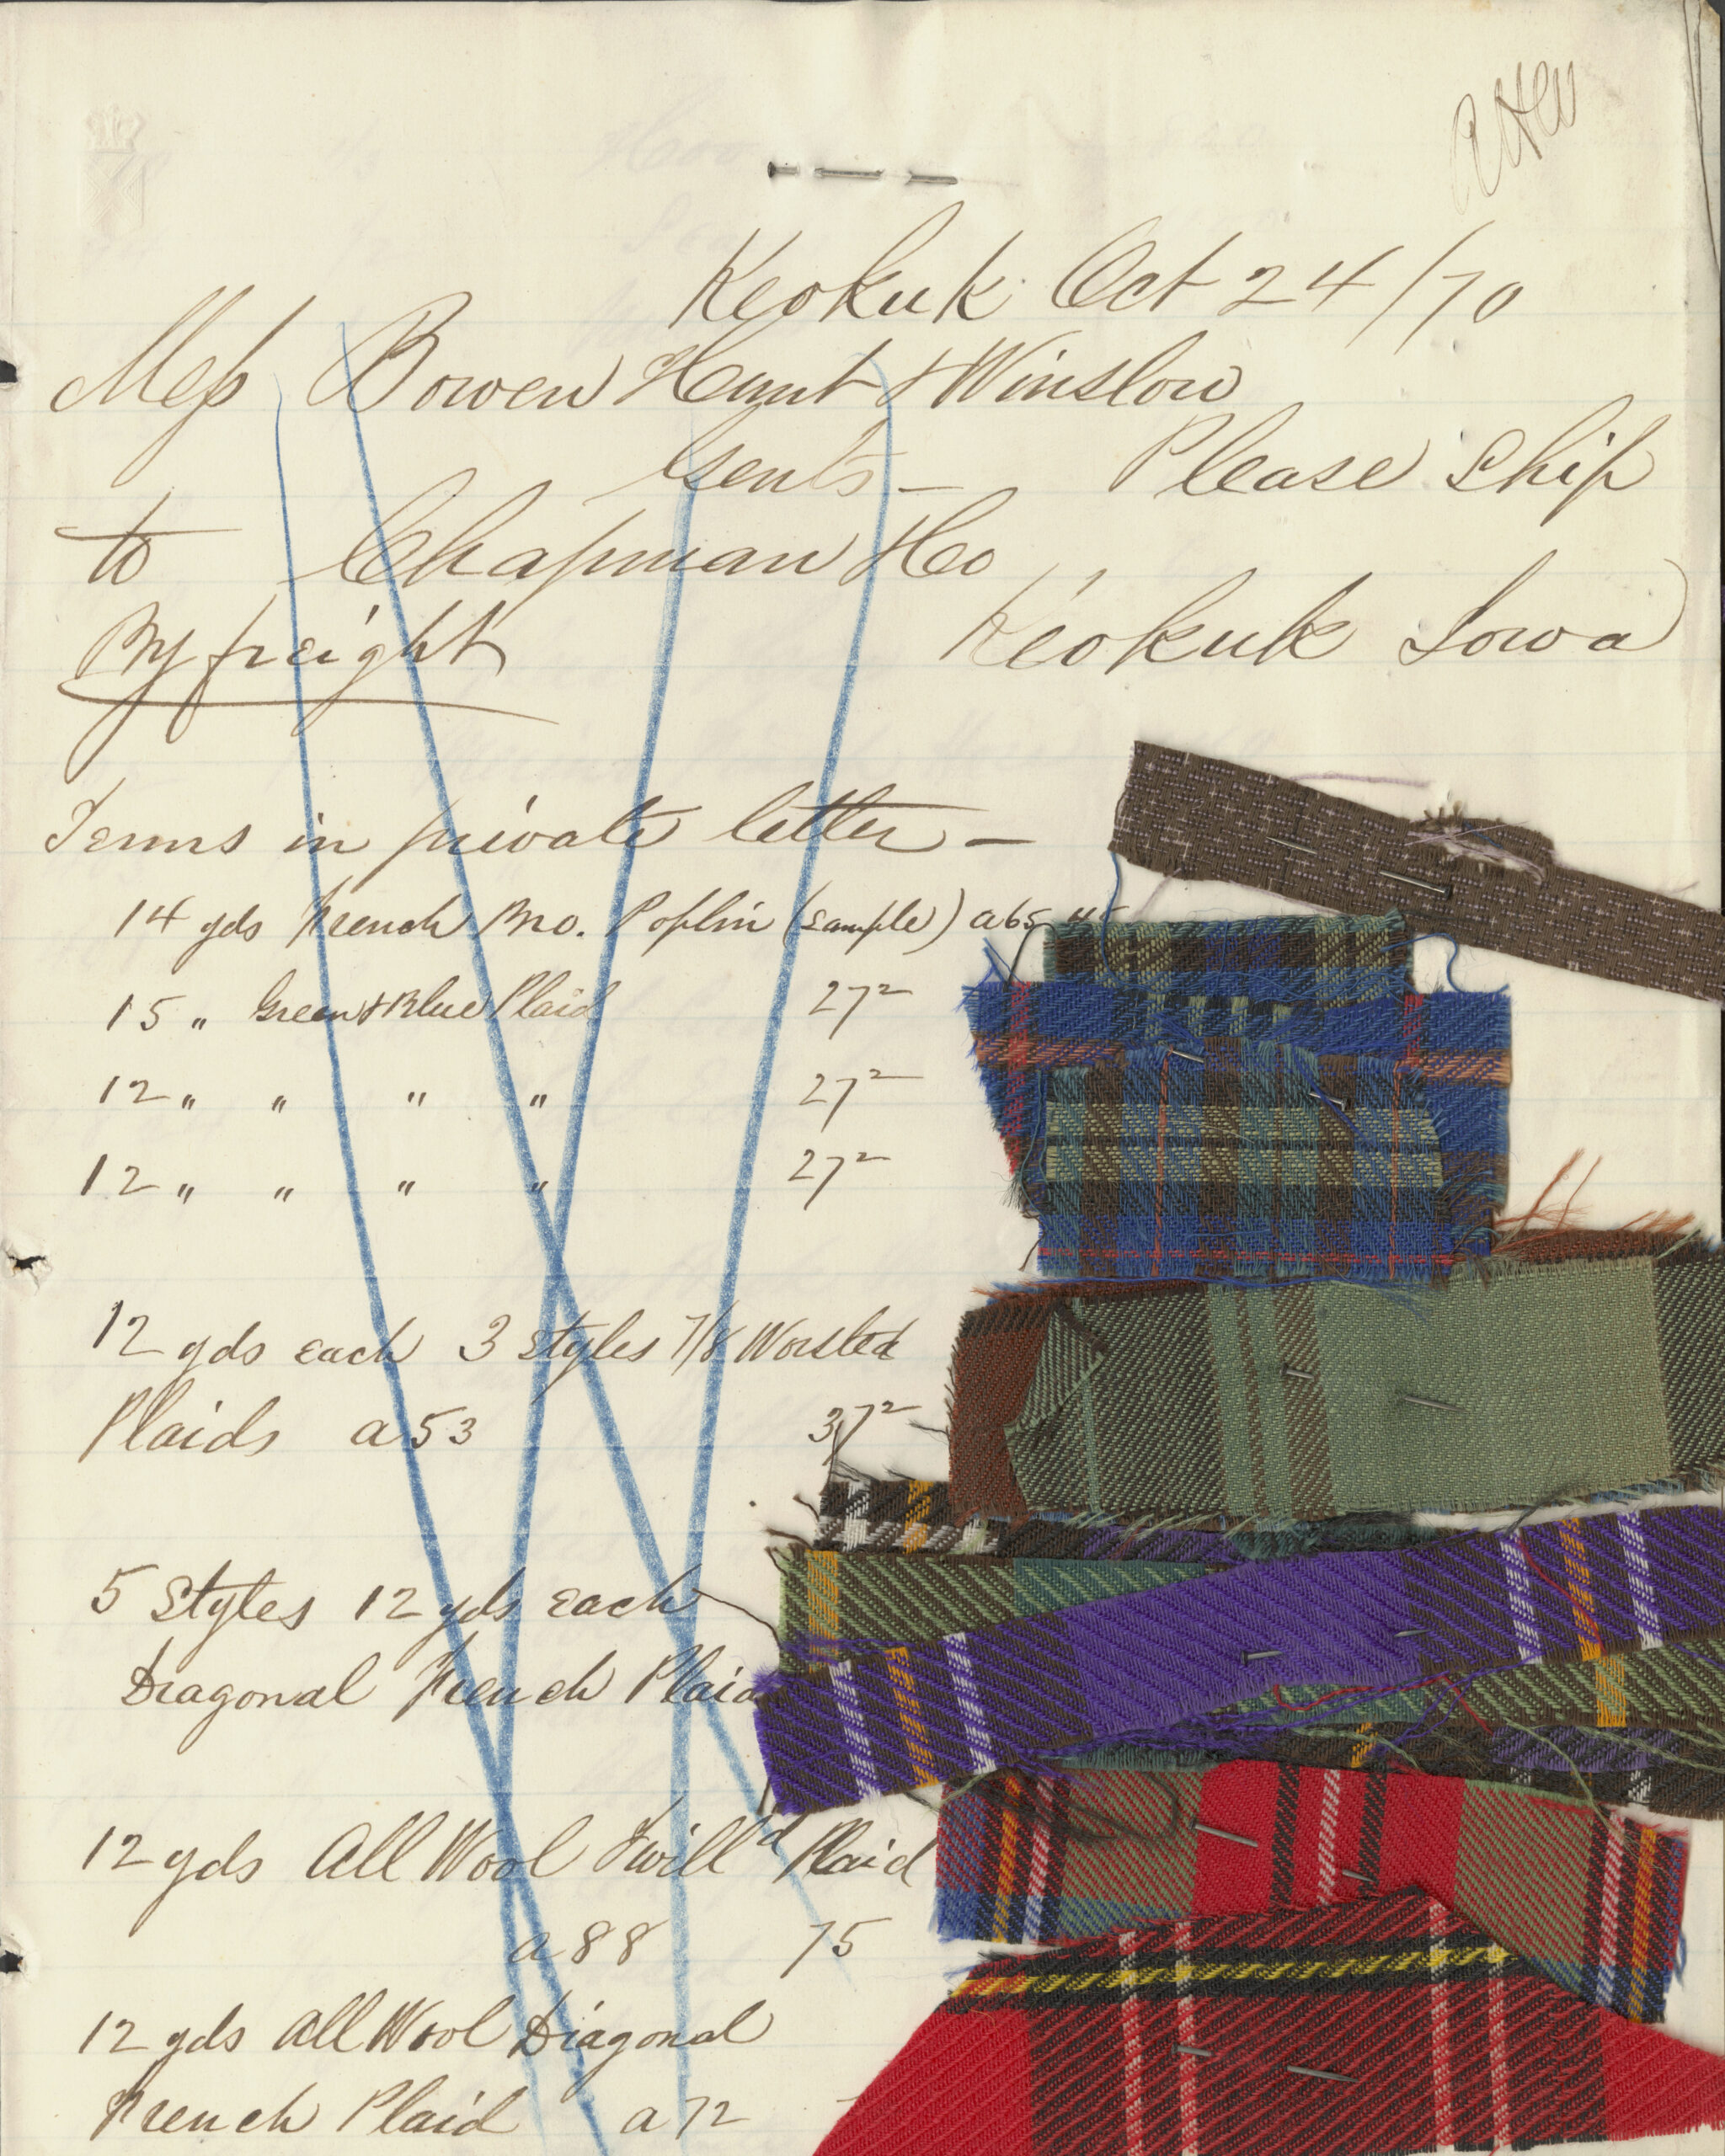 Keokuk Oct 24/70
Mess Bowen Hunt & Winslow
Gents — Please Ship
to Chapman & Co
Keokuk Iowa
By freight
Terms in private letter —
14 yds French Bro. Poplin (sample) a 65 45
15 " Green & Blue Plaid 27²
12 " " " " 27²
12 " " " " 27²
12 yds each 3 styles 7/8 Worsted
Plaids a 53 37²
5 Styles 12 yds each
Diagonal French Plaid
12 yds All Wool Twill'd Plaid
a 88 75
12 yds All Wool Diagonal
French Plaid a 72